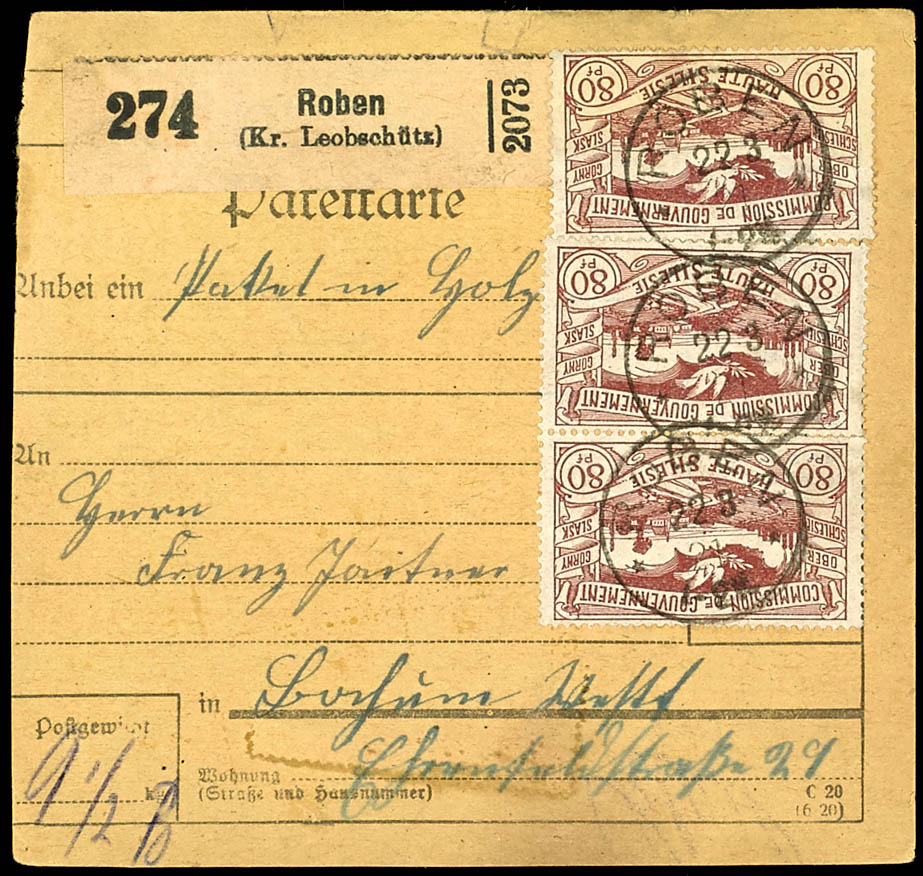 274
Roben
(Kr. Leobschütz)
2073
Paketkarte
Anbei ein Paket in Holz
An
Herrn
Franz Jaitner
in Bochum Westf
Ehrenfeldstraße 29
Wohnung
(Straße und Hausnummer)
Postgewicht
9 1/2
kg
C 20
(6 20)
80 Pf HAUTE SILESIE 80 Pf
OBER SCHLESIEN GORNY SLASK
COMMISSION DE GOUVERNEMENT
ROBEN
22 3
80 Pf HAUTE SILESIE 80 Pf
OBER SCHLESIEN GORNY SLASK
COMMISSION DE GOUVERNEMENT
ROBEN
22 3
80 Pf HAUTE SILESIE 80 Pf
OBER SCHLESIEN GORNY SLASK
COMMISSION DE GOUVERNEMENT
ROBEN
22 3
21